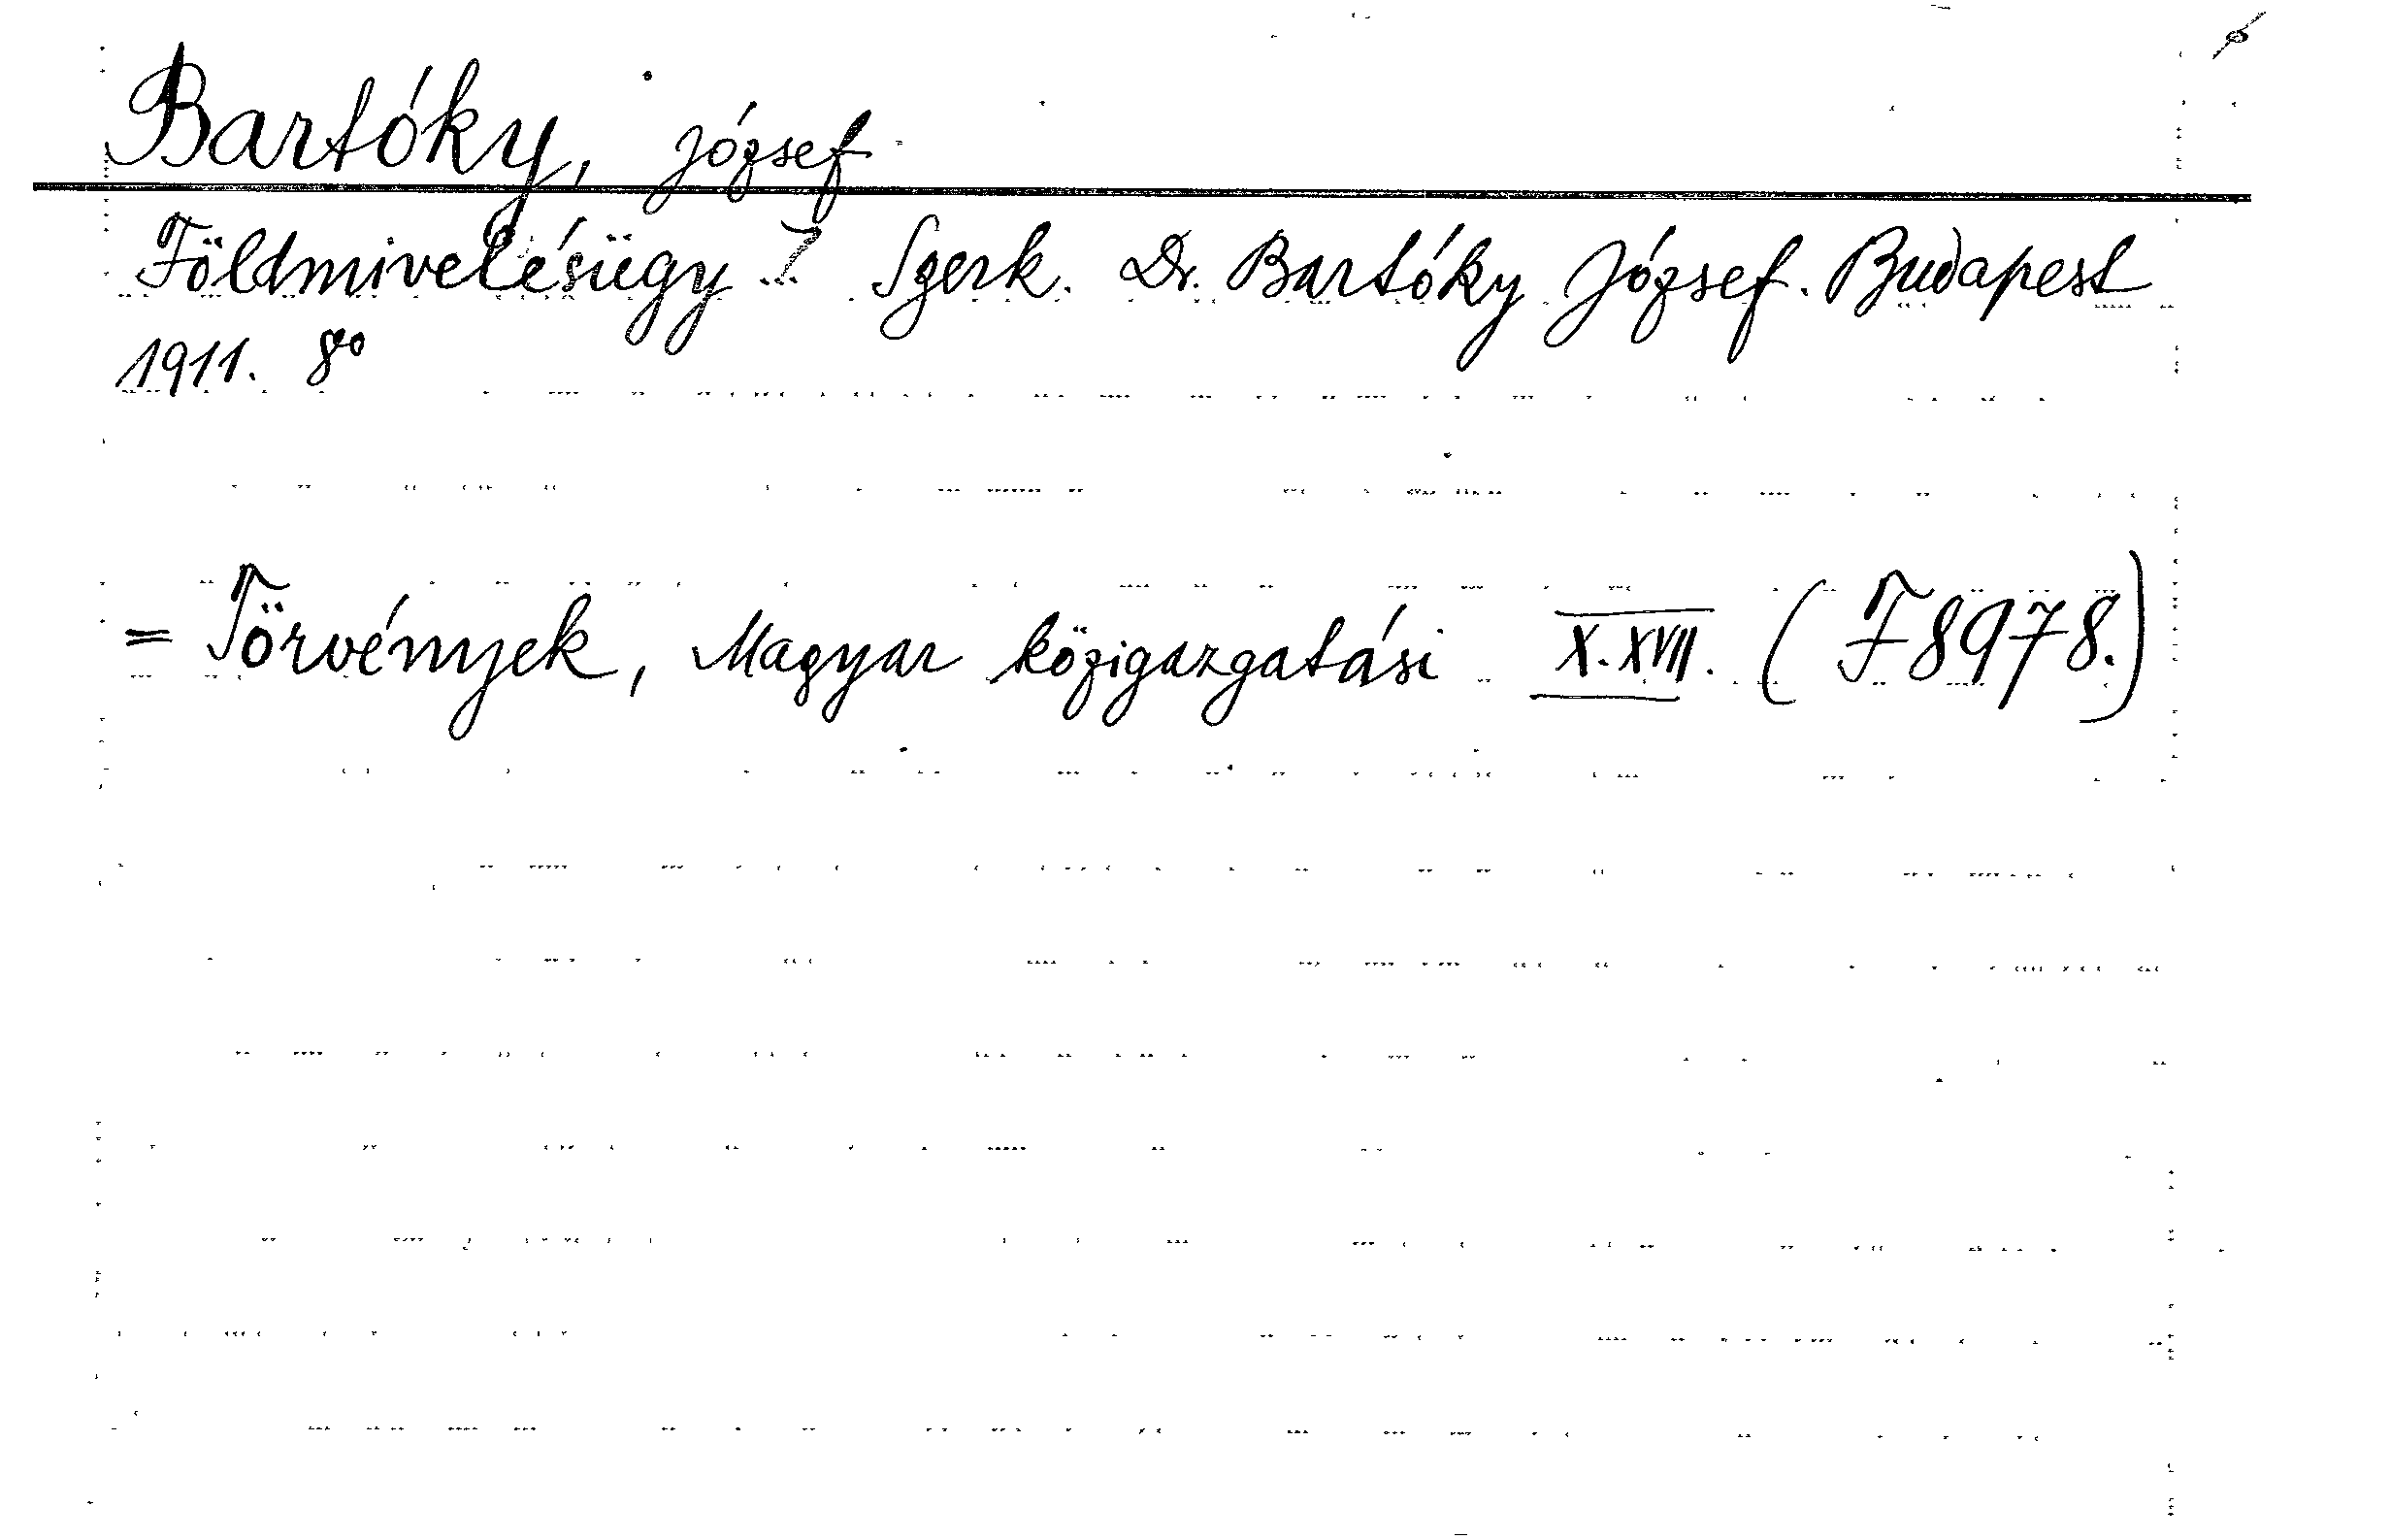 Bartóky, József
Földmivelésügy I. Szerk. Dr. Bartóky József. Budapest
1911. 8°
= Törvények, Magyar közigazgatási X. XVII. (F 8978.)